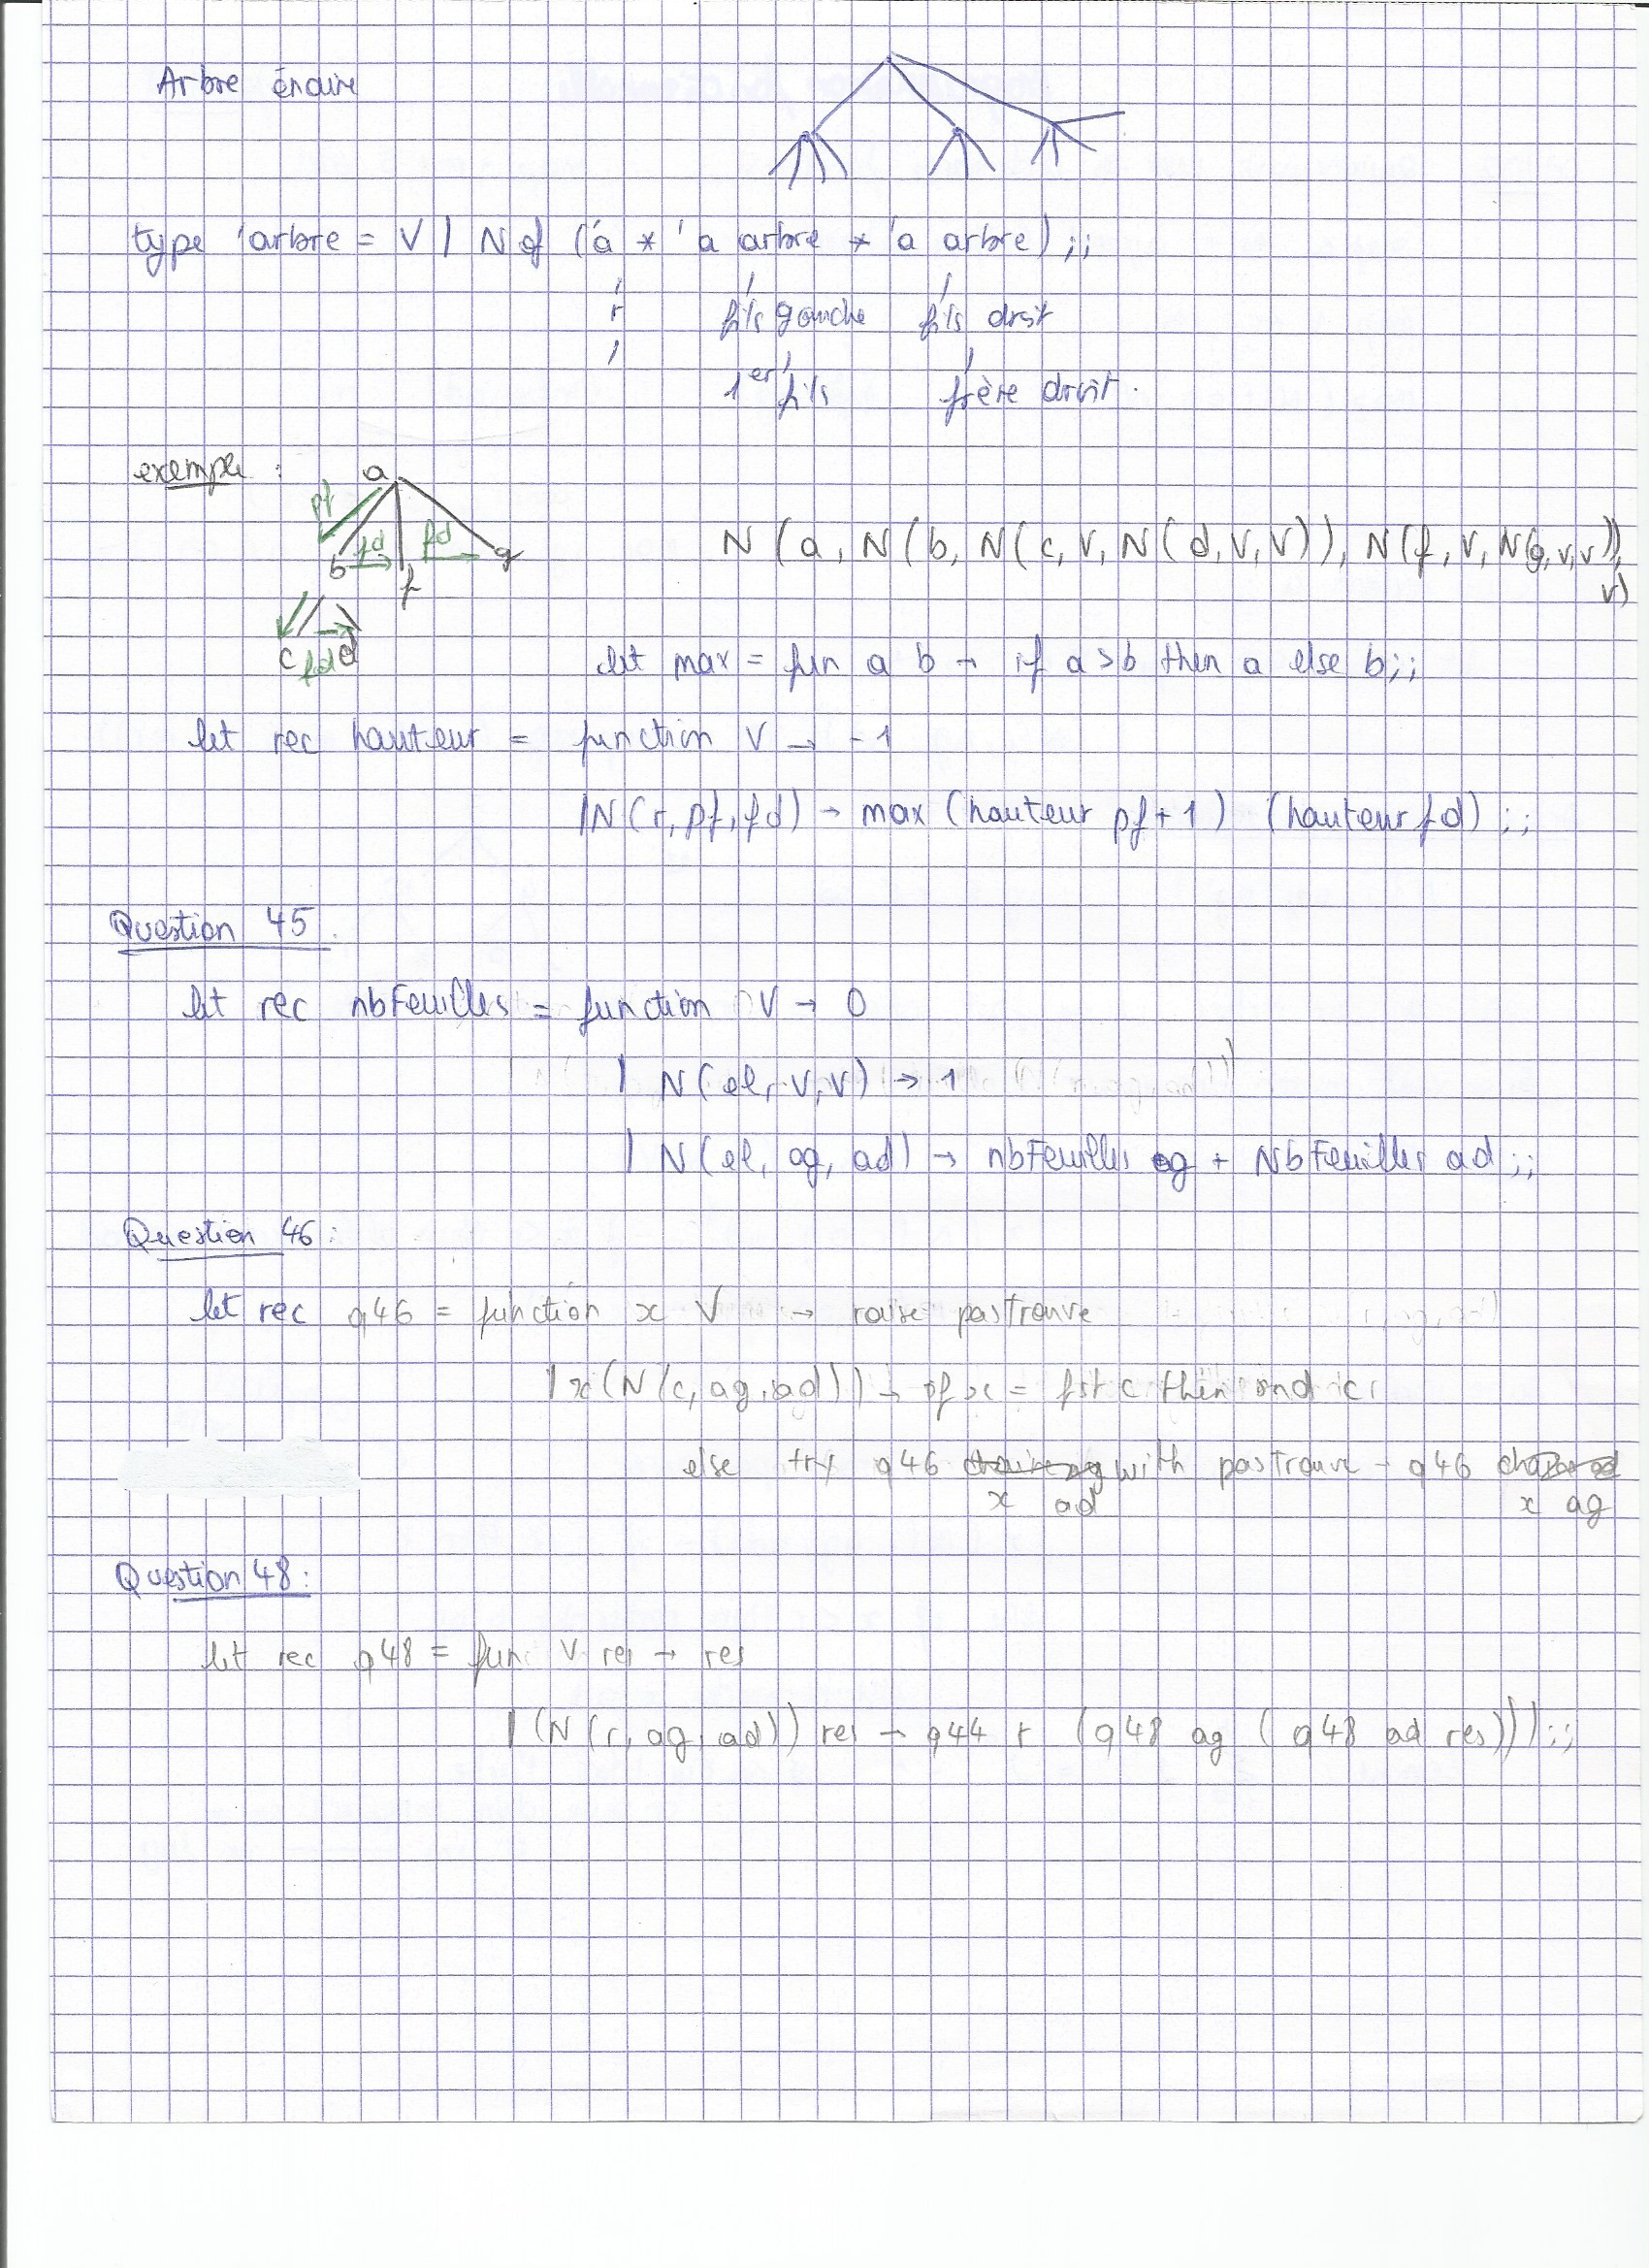 Arbre énaire
type 'arbre = V | N of ('a * 'a arbre * 'a arbre) ;;
r fils gauche fils droit
1er fils frère droit.
exemple :
a
pf fd fd
b f g
c fd d
N (a, N(b, N(c, V, N(d,V,V)), N(f, V, N(g,V,V)), V)
let max = fun a b → if a>b then a else b;;
let rec hauteur = function V → -1
|N(r, pf, fd) → max (hauteur pf + 1) (hauteur fd) ;;
Question 45.
let rec nbFeuilles = function V → 0
| N(el, V, V) → 1
| N(el, ag, ad) → nbFeuilles ag + NbFeuilles ad ;;
Question 46:
let rec q46 = function x V → raise pastrouve
| x (N(c, ag, ad)) → if x = fst c then snd c
else try q46 x ad with pastrouve → q46 x ag
Question 48:
let rec q48 = fun V res → res
| (N(r, ag, ad)) res → q44 r (q48 ag (q48 ad res))) ;;